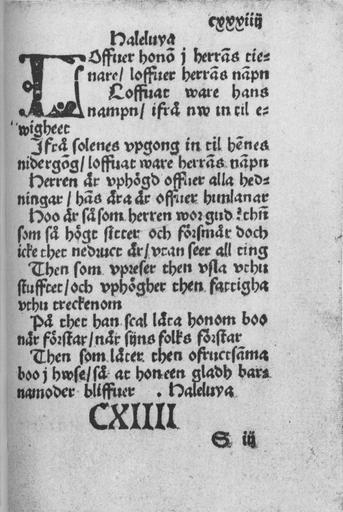 cxxxiiij
Haleluya
LOffuer honõ j herrãs tie-
nare/ loffuer herrãs nãpn
Loffuat ware hans
nampn/ ifrã nw in til e-
wigheet
Jfrå solenes vpgong in til hẽnes
nidergõg/ loffuat ware herrãs nãpn
Herren är vphögd offuer alla hed-
ningar/ hãs ära är offuer himlanar
Hoo är så som herren wor gud? thñ
som så högt sitter och försmår doch
icke thet nedruct är/ vtan seer all ting
Then som vpreser then vsla vthu
stufftet/ och vphögher then fattigha
vthu treckenom
På thet han scal låta honom boo
när förstar/ när sijns folks förstar
Then som låter then ofructsãma
boo j hwse/ så at hon een gladh bars
namoder bliffuer . Haleluya
CXIIII
S iij